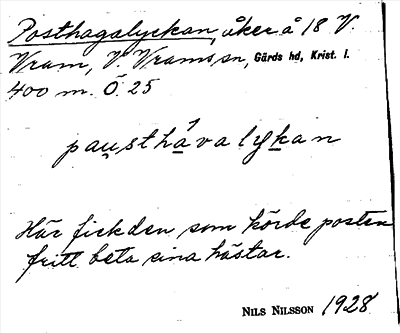 Posthagalyckan, åker å 18 V.
Vram, V. Vrams sn, Gärds hd, Krist. l.
400 m. Ö. 25
paųsthávalykan
Här fick den som körde posten
fritt beta sina hästar.
NILS NILSSON 1928